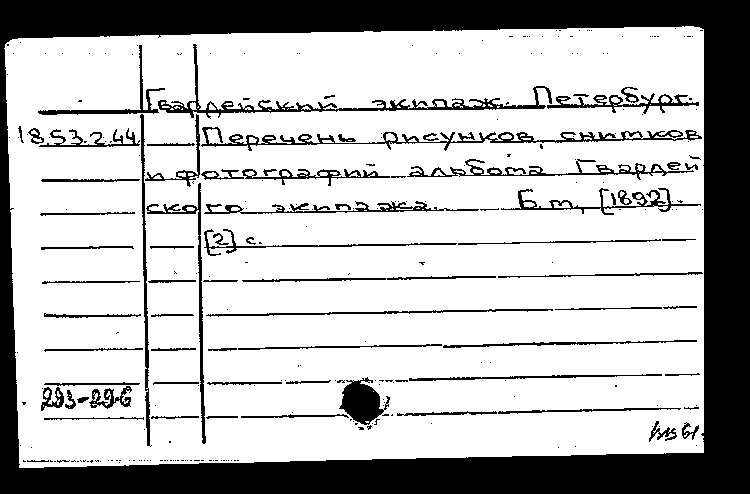 Гвардейский экипаж. Петербург.
18.53.2.44 Перечень рисунков, снимков
и фотографий альбома Гвардей
ского экипажа. Б.т, [1892].
[2] с.
293-29-6